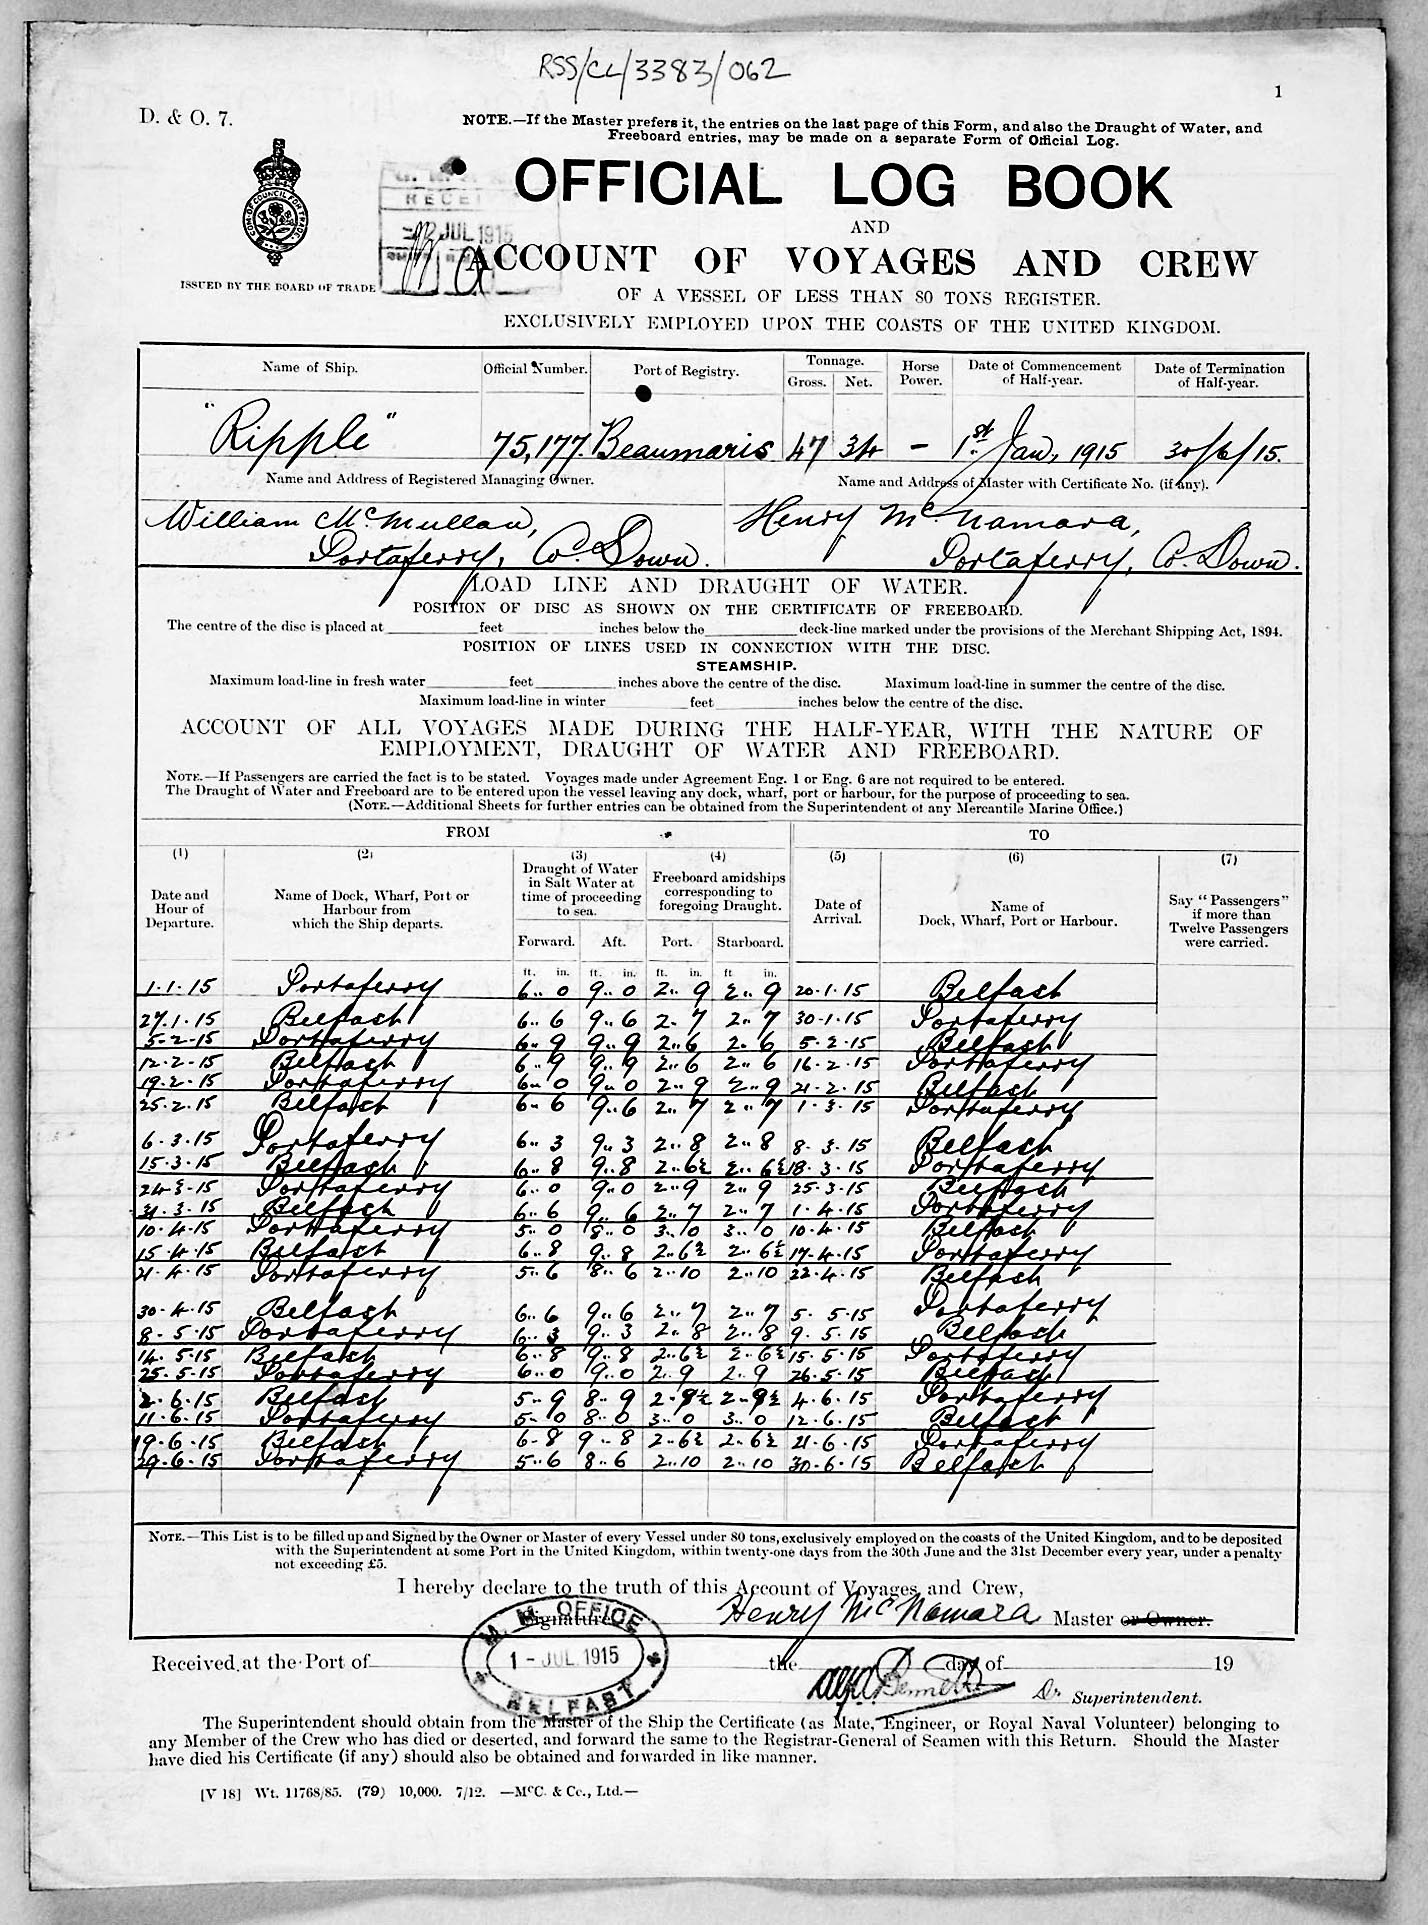 RSS/CL/3383/062
1
D. & O. 7.
NOTE.—If the Master prefers it, the entries on the last page of this Form, and also the Draught of Water, and
Freeboard entries, may be made on a separate Form of Official Log.
COM. OF COUNCIL FOR TRADE
JUL 1915
OFFICIAL LOG BOOK
AND
ACCOUNT OF VOYAGES AND CREW
ISSUED BY THE BOARD OF TRADE
OF A VESSEL OF LESS THAN 80 TONS REGISTER.
EXCLUSIVELY EMPLOYED UPON THE COASTS OF THE UNITED KINGDOM.
Name of Ship. Official Number. Port of Registry. Tonnage. Gross. Net. Horse Power. Date of Commencement of Half-year. Date of Termination of Half-year.
"Ripple" 75,177. Beaumaris 47 34 – 1st Jan, 1915 30/6/15.
Name and Address of Registered Managing Owner. Name and Address of Master with Certificate No. (if any).
William McMullan, Henry McNamara,
Portaferry, Co. Down. Portaferry, Co. Down.
LOAD LINE AND DRAUGHT OF WATER.
POSITION OF DISC AS SHOWN ON THE CERTIFICATE OF FREEBOARD.
The centre of the disc is placed at feet inches below the deck-line marked under the provisions of the Merchant Shipping Act, 1894.
POSITION OF LINES USED IN CONNECTION WITH THE DISC.
STEAMSHIP.
Maximum load-line in fresh water feet inches above the centre of the disc. Maximum load-line in summer the centre of the disc.
Maximum load-line in winter feet inches below the centre of the disc.
ACCOUNT OF ALL VOYAGES MADE DURING THE HALF-YEAR, WITH THE NATURE OF
EMPLOYMENT, DRAUGHT OF WATER AND FREEBOARD.
NOTE.—If Passengers are carried the fact is to be stated. Voyages made under Agreement Eng. 1 or Eng. 6 are not required to be entered.
The Draught of Water and Freeboard are to be entered upon the vessel leaving any dock, wharf, port or harbour, for the purpose of proceeding to sea.
(NOTE.—Additional Sheets for further entries can be obtained from the Superintendent of any Mercantile Marine Office.)
FROM TO
(1) (2) (3) (4) (5) (6) (7)
Date and Hour of Departure. Name of Dock, Wharf, Port or Harbour from which the Ship departs. Draught of Water in Salt Water at time of proceeding to sea. Freeboard amidships corresponding to foregoing Draught. Date of Arrival. Name of Dock, Wharf, Port or Harbour. Say "Passengers" if more than Twelve Passengers were carried.
Forward. Aft. Port. Starboard.
ft. in. ft. in. ft. in. ft in.
1.1.15 Portaferry 6..0 9..0 2..9 2..9 20.1.15 Belfast
27.1.15 Belfast 6..6 9..6 2.7 2..7 30.1.15 Portaferry
5-2-15 Portaferry 6..9 9..9 2..6 2..6 5.2.15 Belfast
12.2.15 Belfast 6..9 9..9 2..6 2..6 16.2.15 Portaferry
19.2.15 Portaferry 6..0 9..0 2..9 2..9 21-2.15 Belfast
25.2.15 Belfast 6..6 9..6 2..7 2..7 1.3.15 Portaferry
6.3.15 Portaferry 6..3 9..3 2..8 2..8 8.3.15 Belfast
15.3.15 Belfast 6..8 9..8 2..6½ 2..6½ 18.3.15 Portaferry
24.3.15 Portaferry 6..0 9..0 2..9 2..9 25.3.15 Belfast
31.3.15 Belfast 6..6 9..6 2..7 2..7 1.4.15 Portaferry
10.4.15 Portaferry 5..0 8..0 3..0 3..0 10.4.15 Belfast
15.4.15 Belfast 6..8 9..8 2..6½ 2..6½ 17.4.15 Portaferry
21.4.15 Portaferry 5..6 8..6 2..10 2..10 22.4.15 Belfast
30.4.15 Belfast 6..6 9..6 2..7 2..7 5.5.15 Portaferry
8.5.15 Portaferry 6..3 9..3 2..8 2..8 9.5.15 Belfast
14.5.15 Belfast 6..8 9..8 2..6½ 2..6½ 15.5.15 Portaferry
25.5.15 Portaferry 6..0 9..0 2.9 2..9 26.5.15 Belfast
2.6.15 Belfast 5..9 8..9 2.9½ 2.9½ 4.6.15 Portaferry
11.6.15 Portaferry 5..0 8..0 3..0 3..0 12.6.15 Belfast
19.6.15 Belfast 6-8 9..8 2.6½ 2.6½ 21.6.15 Portaferry
29.6.15 Portaferry 5..6 8..6 2..10 2..10 30.6.15 Belfast
NOTE.—This List is to be filled up and Signed by the Owner or Master of every Vessel under 80 tons, exclusively employed on the coasts of the United Kingdom, and to be deposited
with the Superintendent at some Port in the United Kingdom, within twenty-one days from the 30th June and the 31st December every year, under a penalty
not exceeding £5.
I hereby declare to the truth of this Account of Voyages and Crew,
Signature Henry McNamara Master or Owner.
M. M. OFFICE
1 - JUL 1915
BELFAST
Received at the Port of the day of 19
Bennett Dr Superintendent.
The Superintendent should obtain from the Master of the Ship the Certificate (as Mate, Engineer, or Royal Naval Volunteer) belonging to
any Member of the Crew who has died or deserted, and forward the same to the Registrar-General of Seamen with this Return. Should the Master
have died his Certificate (if any) should also be obtained and forwarded in like manner.
[V 18] Wt. 11768/85. (79) 10,000. 7/12. —McC. & Co., Ltd.—